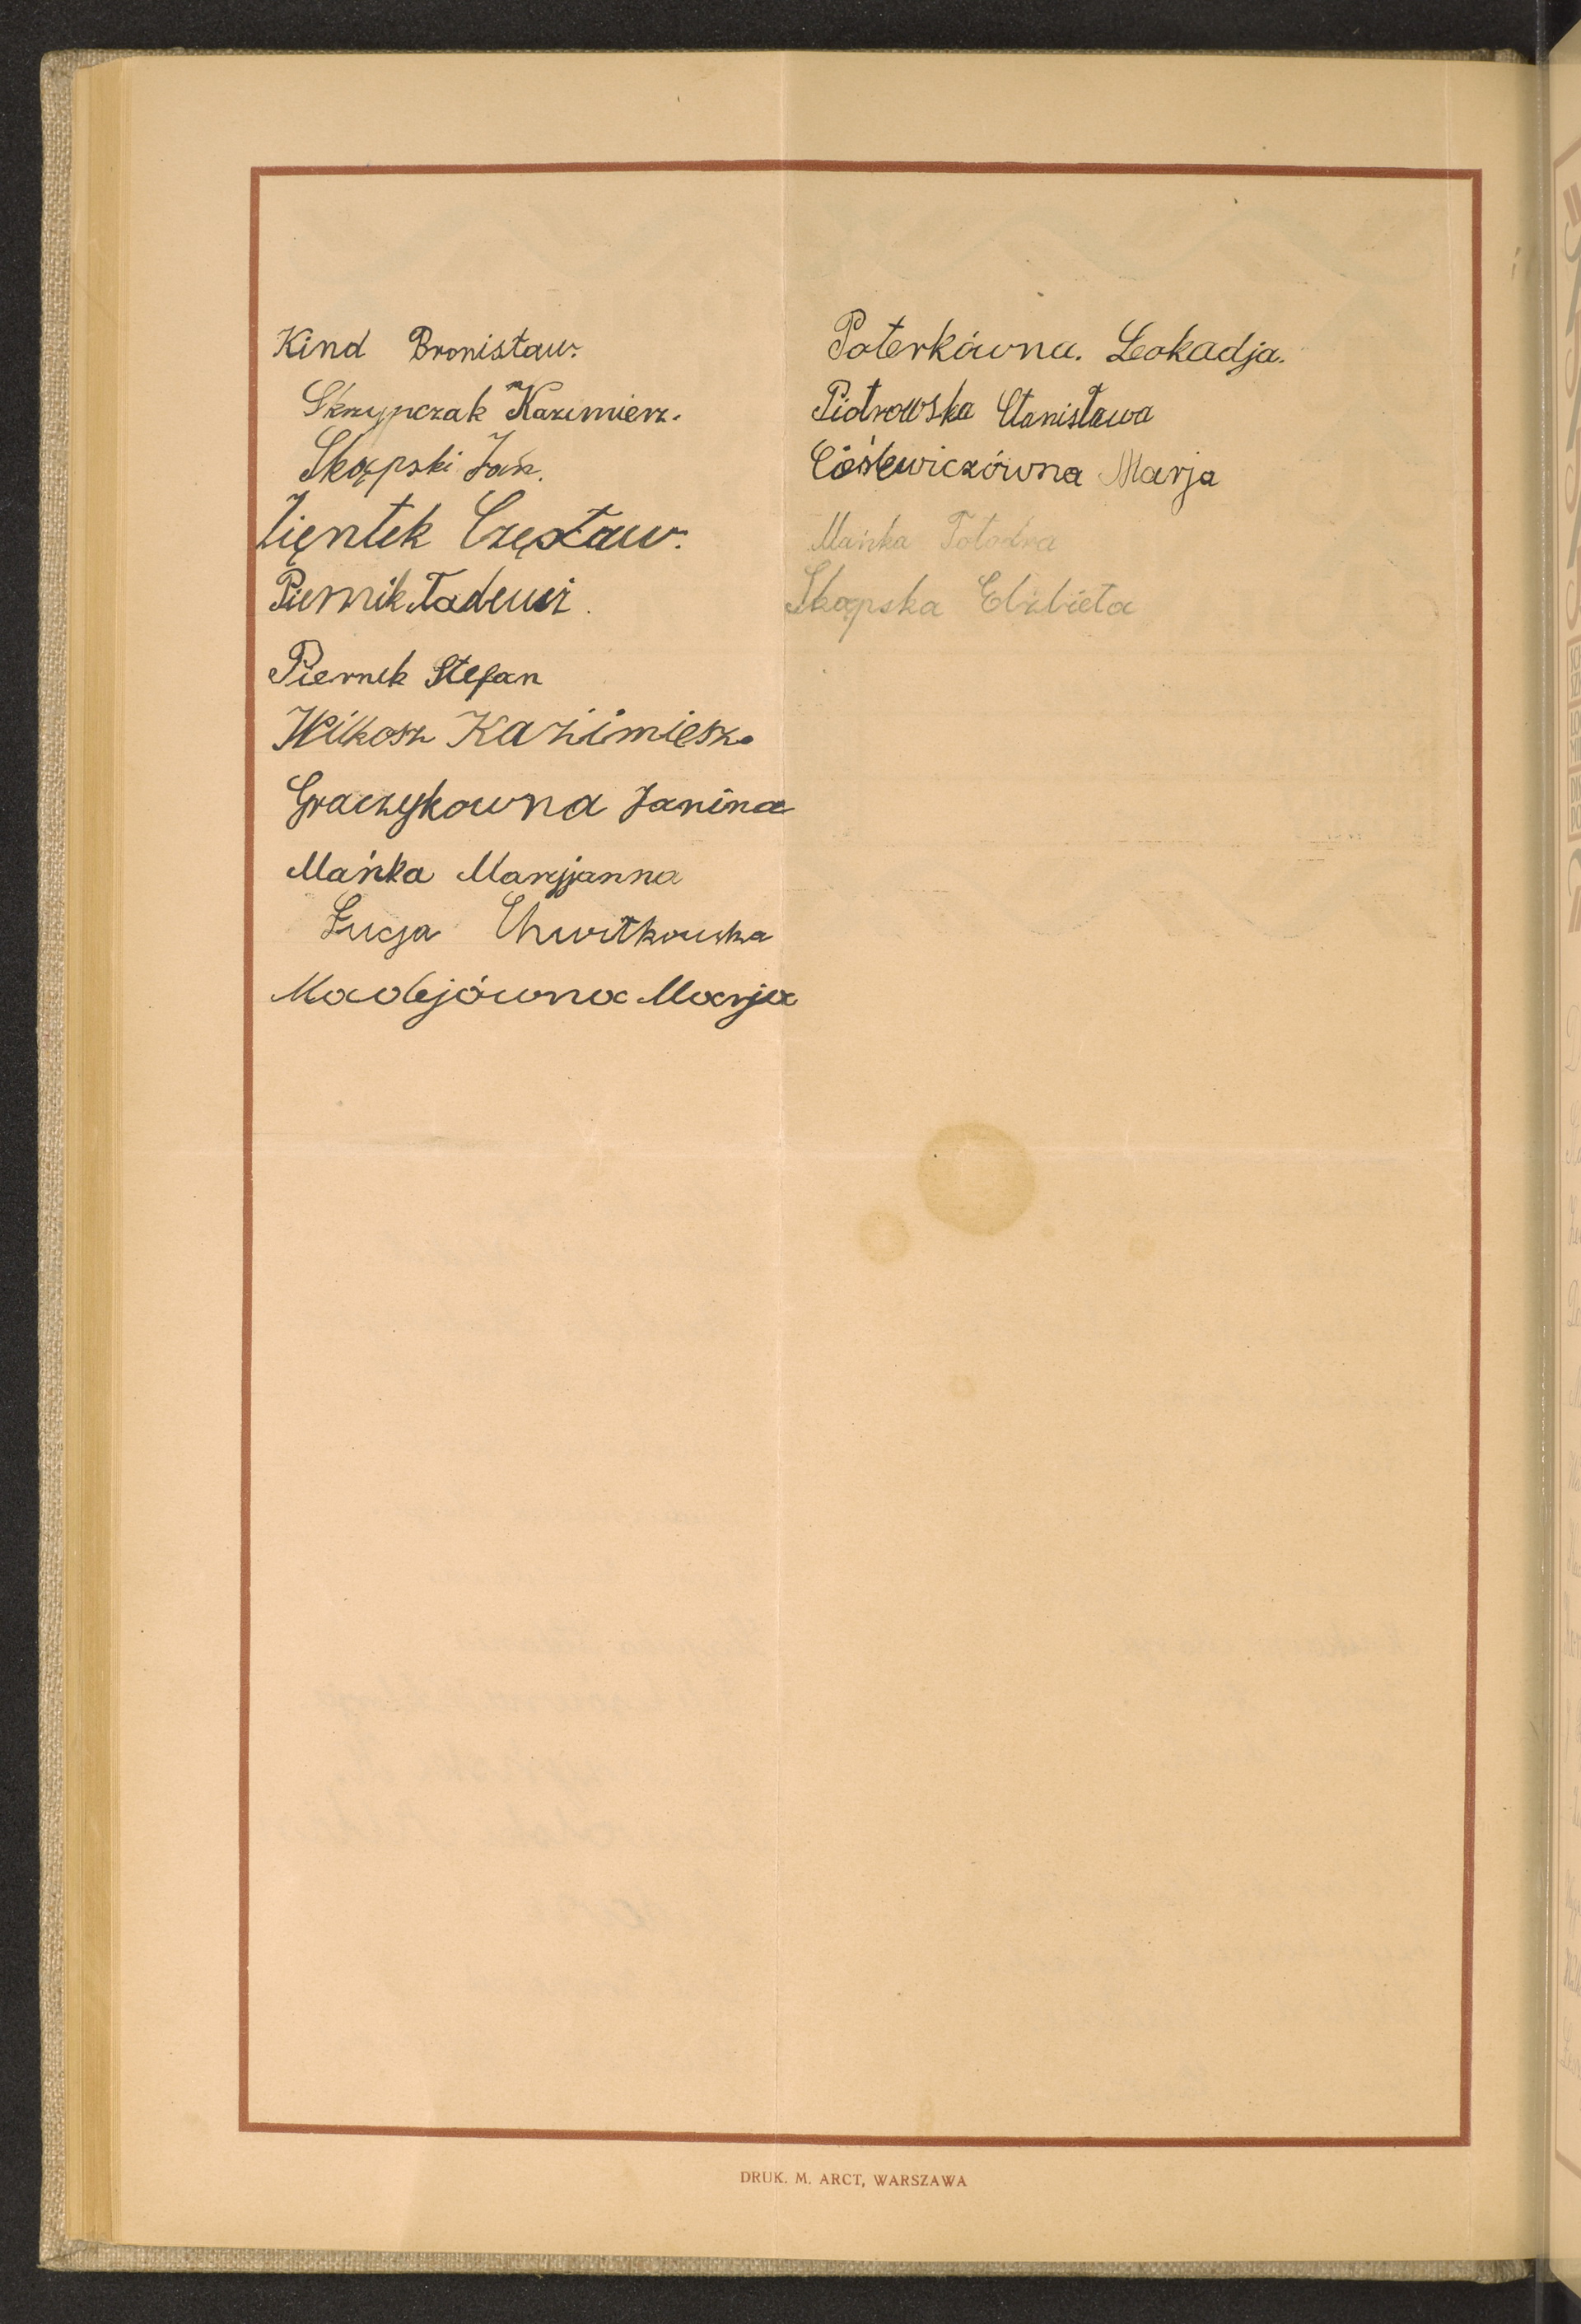 Kind Bronisław.
Skrzypczak Kazimierz.
Skąpski Jan.
Ziętek Czesław.
Piernik Tadeusz.
Piernik Stefan
Wilkosz Kazimiesz.
Graczykowna Janina
Mańka Maryjanna
Łucja Chwitkowska
Madejówna Marja
Paterkówna. Leokadja.
Piotrowska Stanisława
Cieślewiczówna Marja
Mańka
Skąpska Elżbieta
DRUK. M. ARCT, WARSZAWA